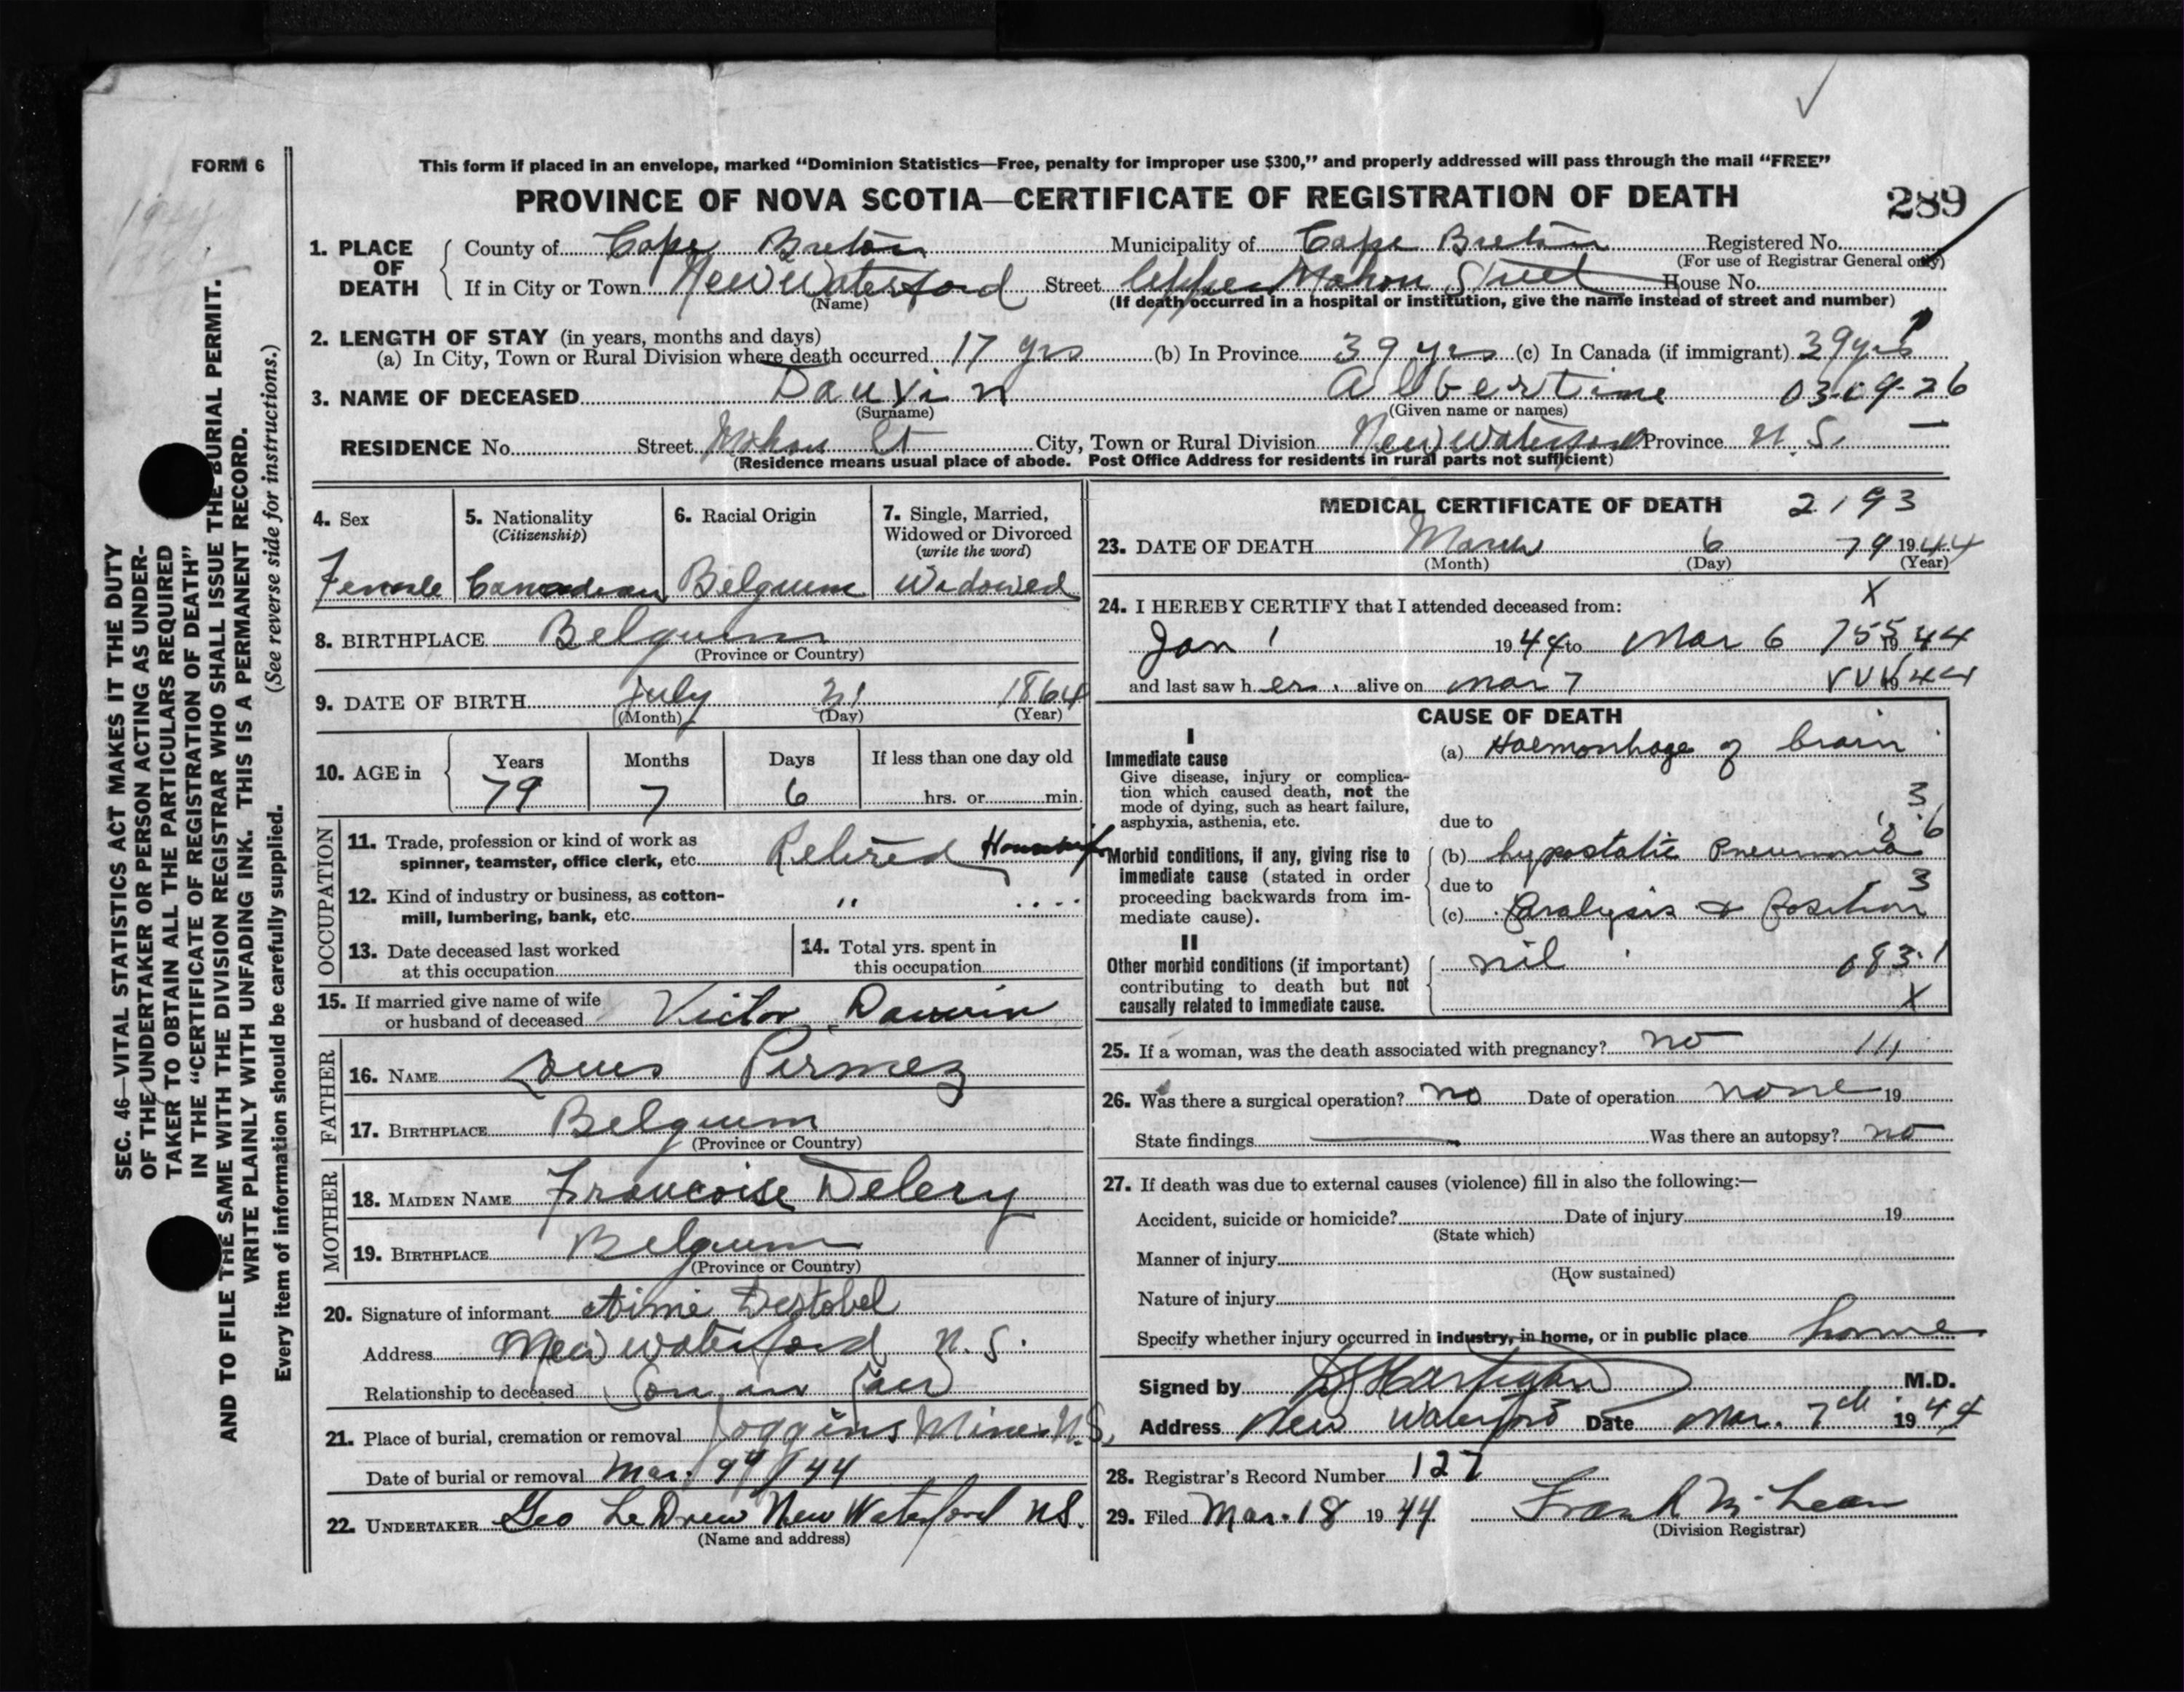 FORM 6
This form if placed in an envelope, marked "Dominion Statistics—Free, penalty for improper use $300," and properly addressed will pass through the mail "FREE"
PROVINCE OF NOVA SCOTIA—CERTIFICATE OF REGISTRATION OF DEATH 289
1. PLACE OF DEATH County of Cape Breton Municipality of Cape Breton Registered No.
(For use of Registrar General only)
If in City or Town New Waterford Street Upper Mahon Street House No.
(Name) (If death occurred in a hospital or institution, give the name instead of street and number)
2. LENGTH OF STAY (in years, months and days)
(a) In City, Town or Rural Division where death occurred 17 yrs (b) In Province 39 yrs (c) In Canada (if immigrant) 39 yrs
3. NAME OF DECEASED Dauvin Albertine 03-09-26
(Surname) (Given name or names)
RESIDENCE No. Street Mahon St City, Town or Rural Division New Waterford Province N.S. —
(Residence means usual place of abode. Post Office Address for residents in rural parts not sufficient)
4. Sex Female
5. Nationality (Citizenship) Canadian
6. Racial Origin Belguim
7. Single, Married, Widowed or Divorced (write the word) Widowed
8. BIRTHPLACE Belguim
(Province or Country)
9. DATE OF BIRTH July 31 1864
(Month) (Day) (Year)
10. AGE in Years 79 Months 7 Days 6 If less than one day old
hrs. or min.
OCCUPATION
11. Trade, profession or kind of work as
spinner, teamster, office clerk, etc. Retired Housewife
12. Kind of industry or business, as cotton-
mill, lumbering, bank, etc. "
13. Date deceased last worked
at this occupation
14. Total yrs. spent in
this occupation
15. If married give name of wife
or husband of deceased Victor Dauvin
FATHER
16. NAME Louis Pirmez
17. BIRTHPLACE Belguim
(Province or Country)
MOTHER
18. MAIDEN NAME Francoise Delery
19. BIRTHPLACE Belguim
(Province or Country)
20. Signature of informant Aimie Destobel
Address New Waterford N.S.
Relationship to deceased Son in law
21. Place of burial, cremation or removal Joggins Mines N.S.
Date of burial or removal Mar. 9th/44
22. UNDERTAKER Geo LeDrew New Waterford NS.
(Name and address)
MEDICAL CERTIFICATE OF DEATH 2193
23. DATE OF DEATH March 6 79 1944
(Month) (Day) (Year)
X
24. I HEREBY CERTIFY that I attended deceased from:
Jan 1 1944 to Mar 6 755 1944
and last saw her alive on Mar 7 1944
CAUSE OF DEATH
I
Immediate cause
Give disease, injury or complica-
tion which caused death, not the
mode of dying, such as heart failure,
asphyxia, asthenia, etc.
(a) Haemorrhage of brain
3
due to
Morbid conditions, if any, giving rise to
immediate cause (stated in order
proceeding backwards from im-
mediate cause).
(b) hypostatic Pneumonia
due to 3
(c) Paralysis & Position
II
Other morbid conditions (if important)
contributing to death but not
causally related to immediate cause.
nil 083.1
X
25. If a woman, was the death associated with pregnancy? no 111
26. Was there a surgical operation? no Date of operation none 19
State findings — Was there an autopsy? no
27. If death was due to external causes (violence) fill in also the following:—
Accident, suicide or homicide? Date of injury 19
(State which)
Manner of injury
(How sustained)
Nature of injury
Specify whether injury occurred in industry, in home, or in public place home
Signed by Hartigan M.D.
Address New Waterford Date Mar. 7th 1944
28. Registrar's Record Number 127
29. Filed Mar. 18 1944 Frank McLean
(Division Registrar)
SEC. 46—VITAL STATISTICS ACT MAKES IT THE DUTY
OF THE UNDERTAKER OR PERSON ACTING AS UNDER-
TAKER TO OBTAIN ALL THE PARTICULARS REQUIRED
IN THE "CERTIFICATE OF REGISTRATION OF DEATH"
AND TO FILE THE SAME WITH THE DIVISION REGISTRAR WHO SHALL ISSUE THE BURIAL PERMIT.
WRITE PLAINLY WITH UNFADING INK. THIS IS A PERMANENT RECORD.
Every item of information should be carefully supplied. (See reverse side for instructions.)